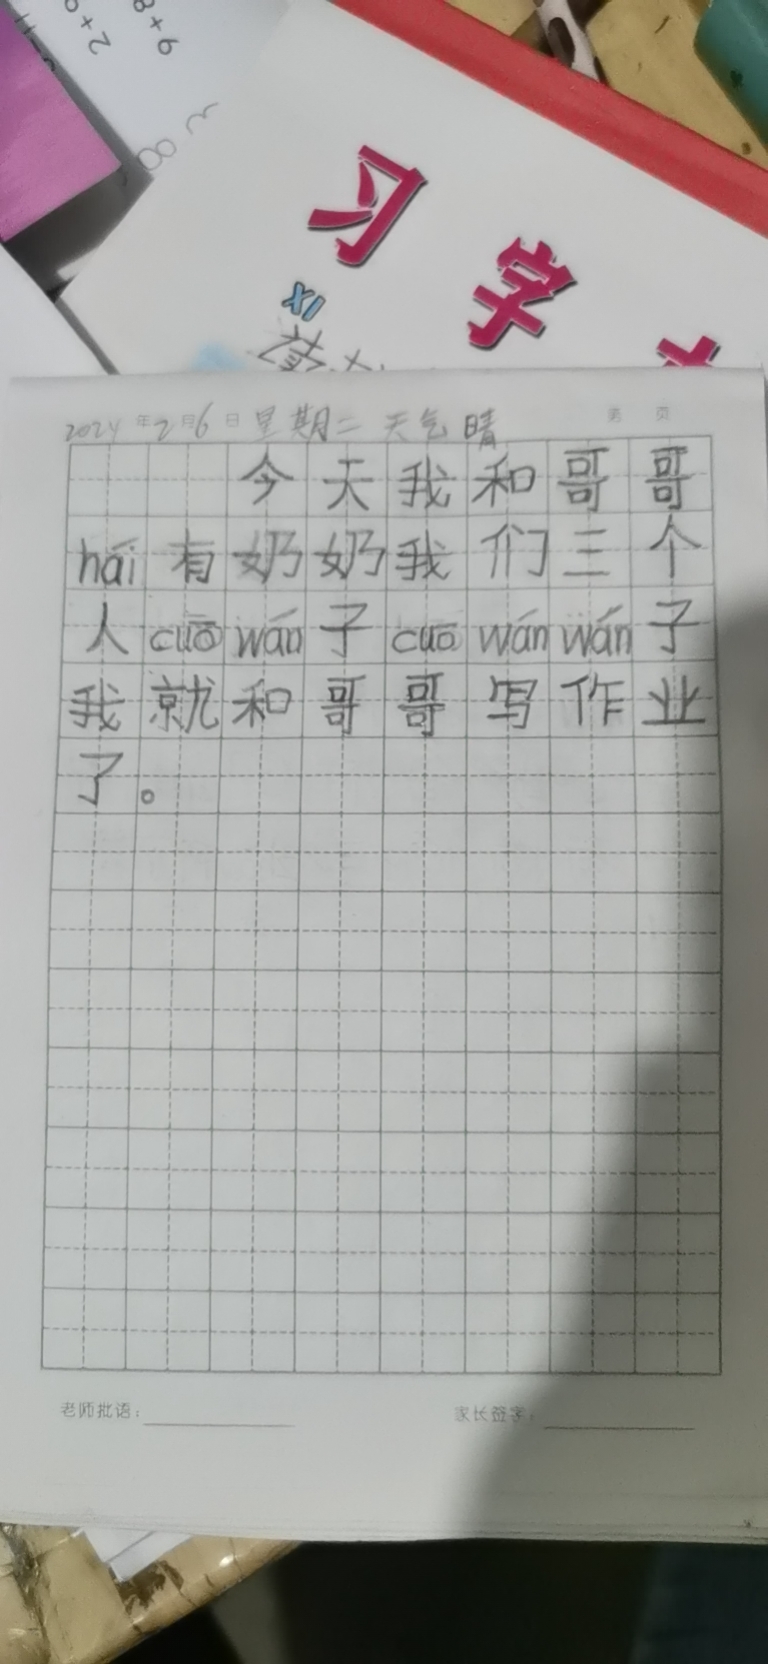 习字
XI
2024年2月6日 星期二 天气晴
第 页
今天我和哥哥
hái有奶奶我们三个
人cuō wán子cuō wán wán子
我就和哥哥写作业
了。
老师批语：
家长签字：